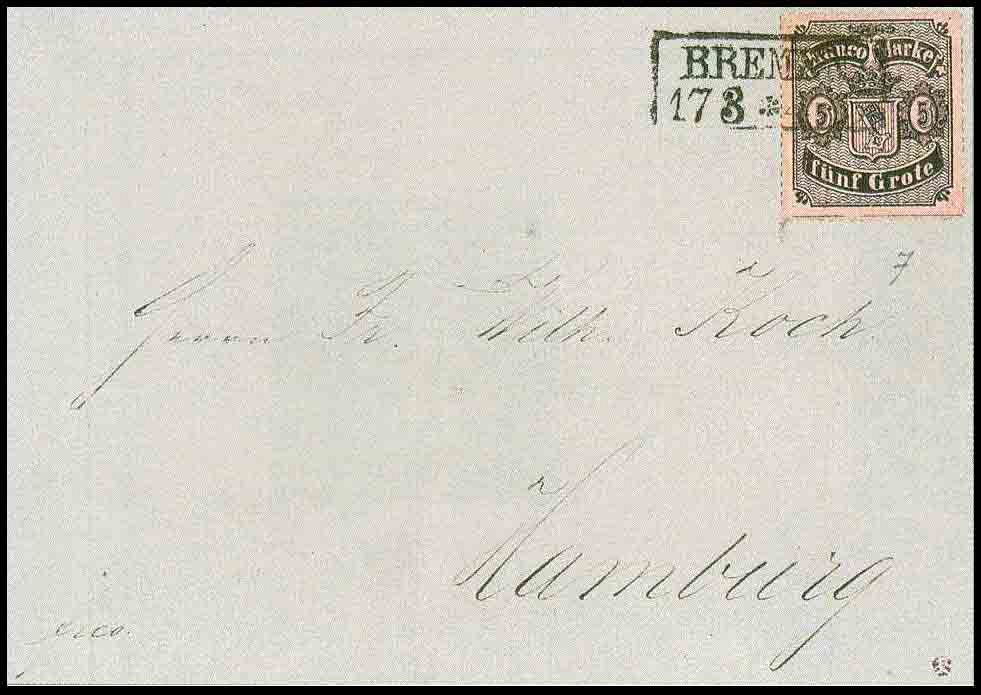 BREM
17 8 *
Franco Marke
5 5
fünf Grote
7
Herrn Fr. Wilh. Koch.
Hamburg